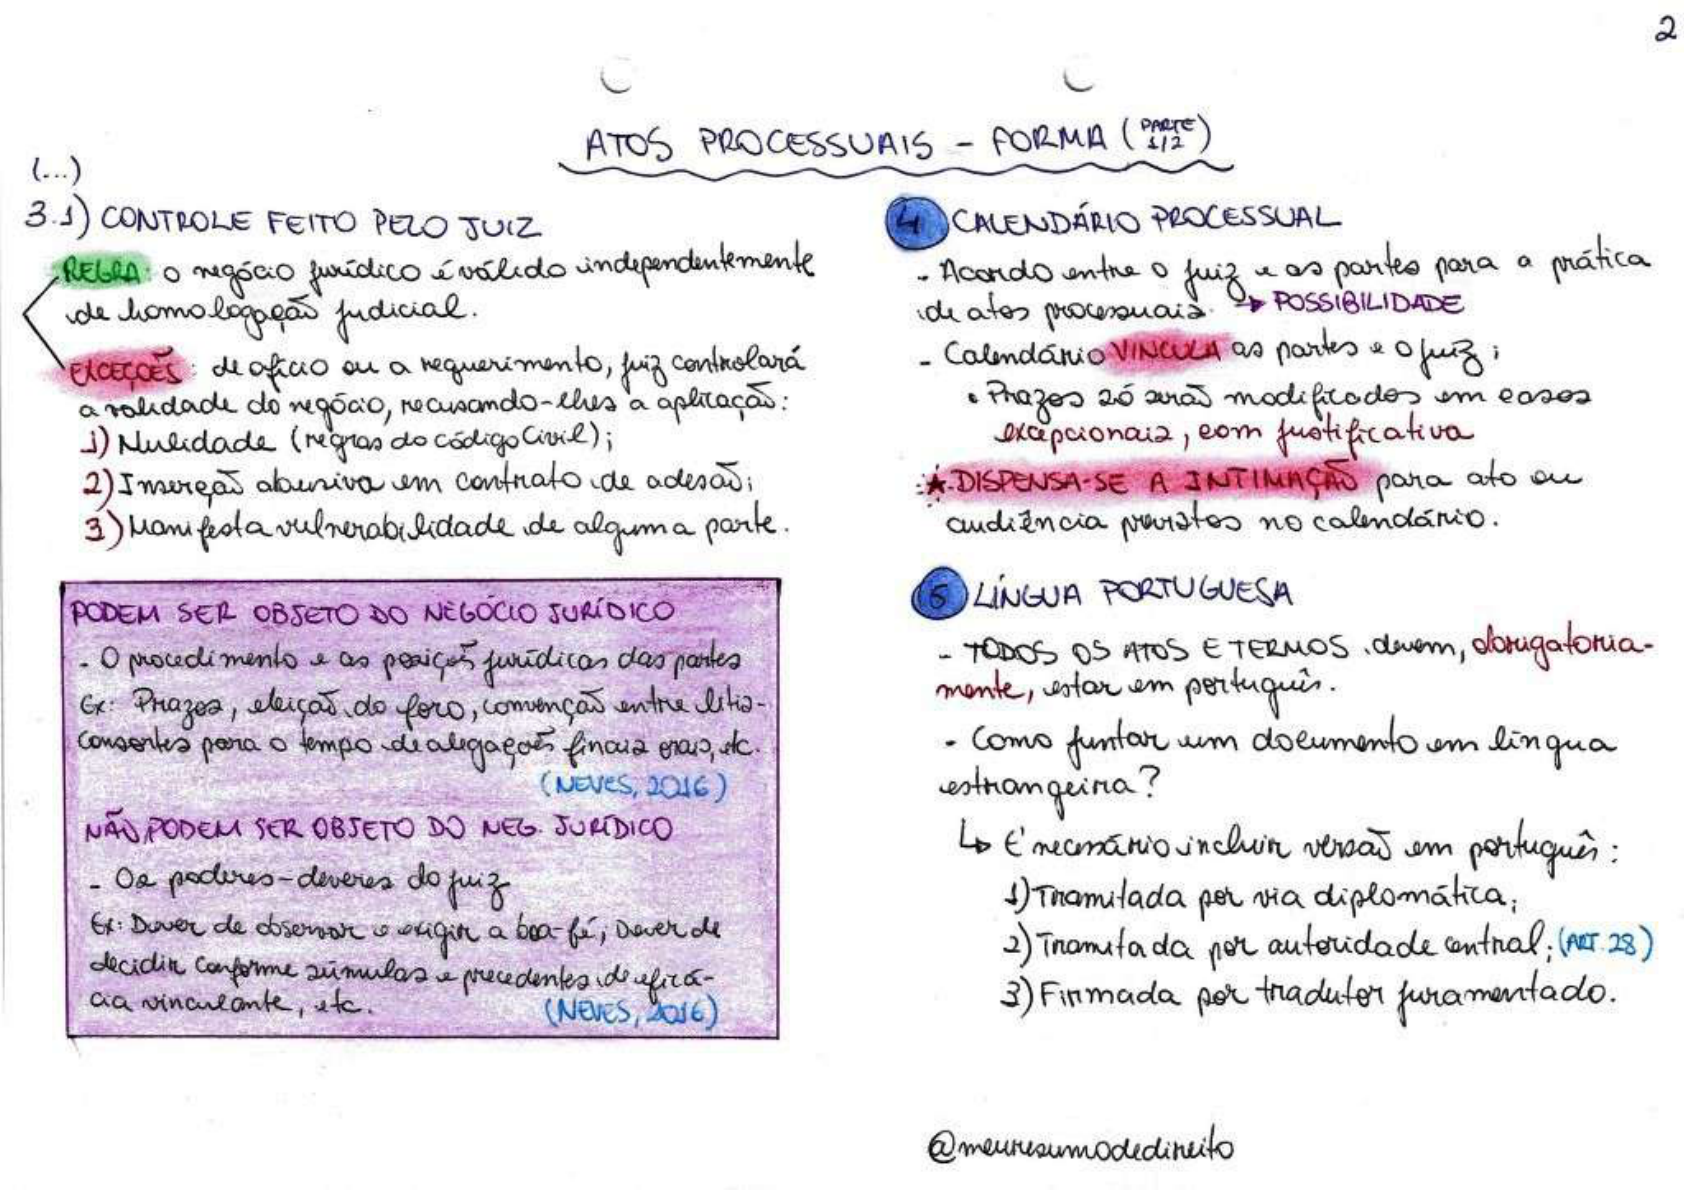 2
ATOS PROCESSUAIS - FORMA (PARTE 1/2)
(...)
3.1) CONTROLE FEITO PELO JUIZ
REGRA: o negócio jurídico é válido independentemente
de homologação judicial.
EXCEÇÕES: de ofício ou a requerimento, juiz controlará
a validade do negócio, recusando-lhes a aplicação:
1) Nulidade (regras do código Civil);
2) Inserção abusiva em contrato de adesão;
3) Manifesta vulnerabilidade de alguma parte.
PODEM SER OBJETO DO NEGÓCIO JURÍDICO
- O procedimento e as posições jurídicas das partes
Ex: Prazos, eleição do foro, convenção entre litis-
consortes para o tempo de alegações finais orais, etc.
(NEVES, 2016)
NÃO PODEM SER OBJETO DO NEG. JURÍDICO
- Os poderes-deveres do juiz
Ex: Dever de observar e exigir a boa-fé; Dever de
decidir conforme súmulas e precedentes de eficá-
cia vinculante, etc.
(NEVES, 2016)
4 CALENDÁRIO PROCESSUAL
- Acordo entre o juiz e as partes para a prática
de atos processuais. → POSSIBILIDADE
- Calendário VINCULA as partes e o juiz;
• Prazos só serão modificados em casos
excepcionais, com justificativa
★ DISPENSA-SE A INTIMAÇÃO para ato ou
audiência previstos no calendário.
5 LÍNGUA PORTUGUESA
- TODOS OS ATOS E TERMOS devem, obrigatoria-
mente, estar em português.
- Como juntar um documento em língua
estrangeira?
↳ É necessário incluir versão em português:
1) Tramitada por via diplomática;
2) Tramitada por autoridade central; (ART. 28)
3) Firmada por tradutor juramentado.
@meuresumodedireito